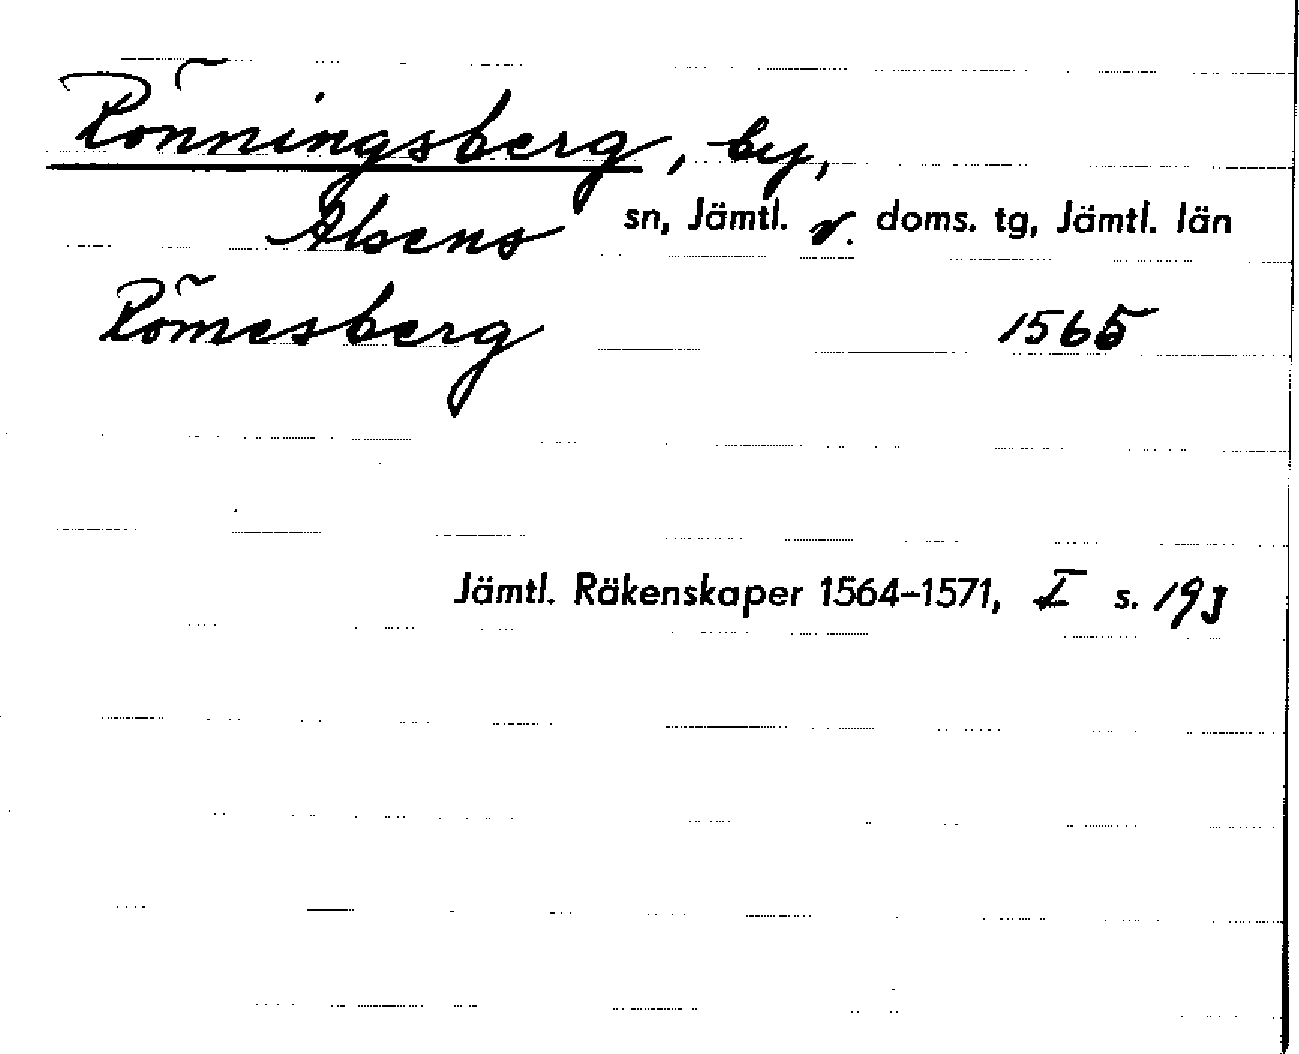 Rönningsberg, by,
Alsens sn, Jämtl. v. doms. tg, Jämtl. län
Römesberg 1565
Jämtl. Räkenskaper 1564-1571, I s. 193